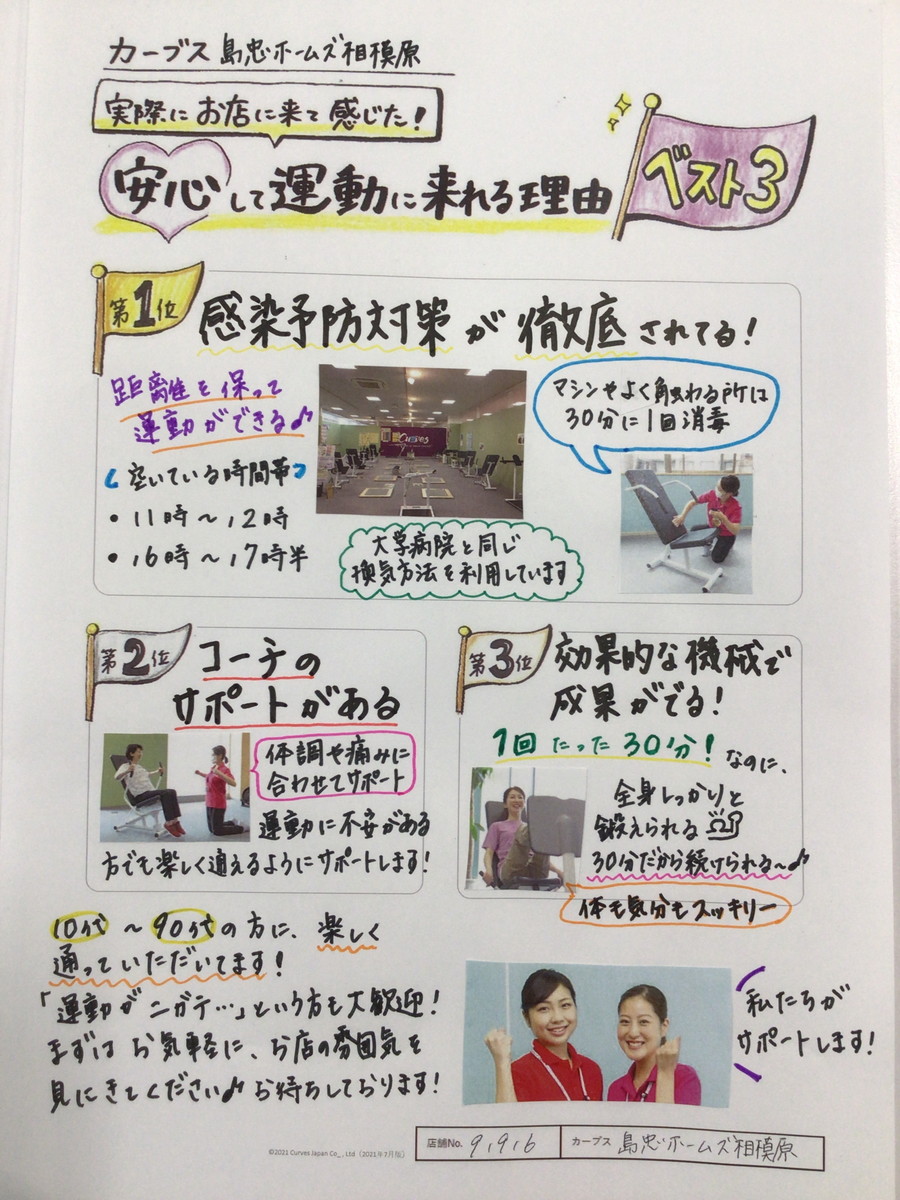 カーブス 島忠ホームズ相模原
実際にお店に来て感じた!
安心して運動に来れる理由
ベスト3
第1位
感染予防対策が徹底されてる!
距離を保って
運動ができる♪
空いている時間帯
・11時〜12時
・16時〜17時半
Curves
マシンやよく触わる所は
30分に1回消毒
大学病院と同じ
換気方法を利用しています
第2位
コーチの
サポートがある
体調や痛みに
合わせてサポート
運動に不安がある
方でも楽しく通えるようにサポートします!
第3位
効果的な機械で
成果がでる!
1回たった30分!なのに、
全身しっかりと
鍛えられる
30分だから続けられる〜♪
体も気分もスッキリー
10代〜90代の方に、楽しく
通っていただいてます!
「運動がニガテ…」という方も大歓迎!
まずはお気軽に、お店の雰囲気を
見にきてください♪お待ちしております!
私たちが
サポートします!
©2021 Curves Japan Co., Ltd（2021年7月版）
店舗No. 9196
カーブス 島忠ホームズ相模原